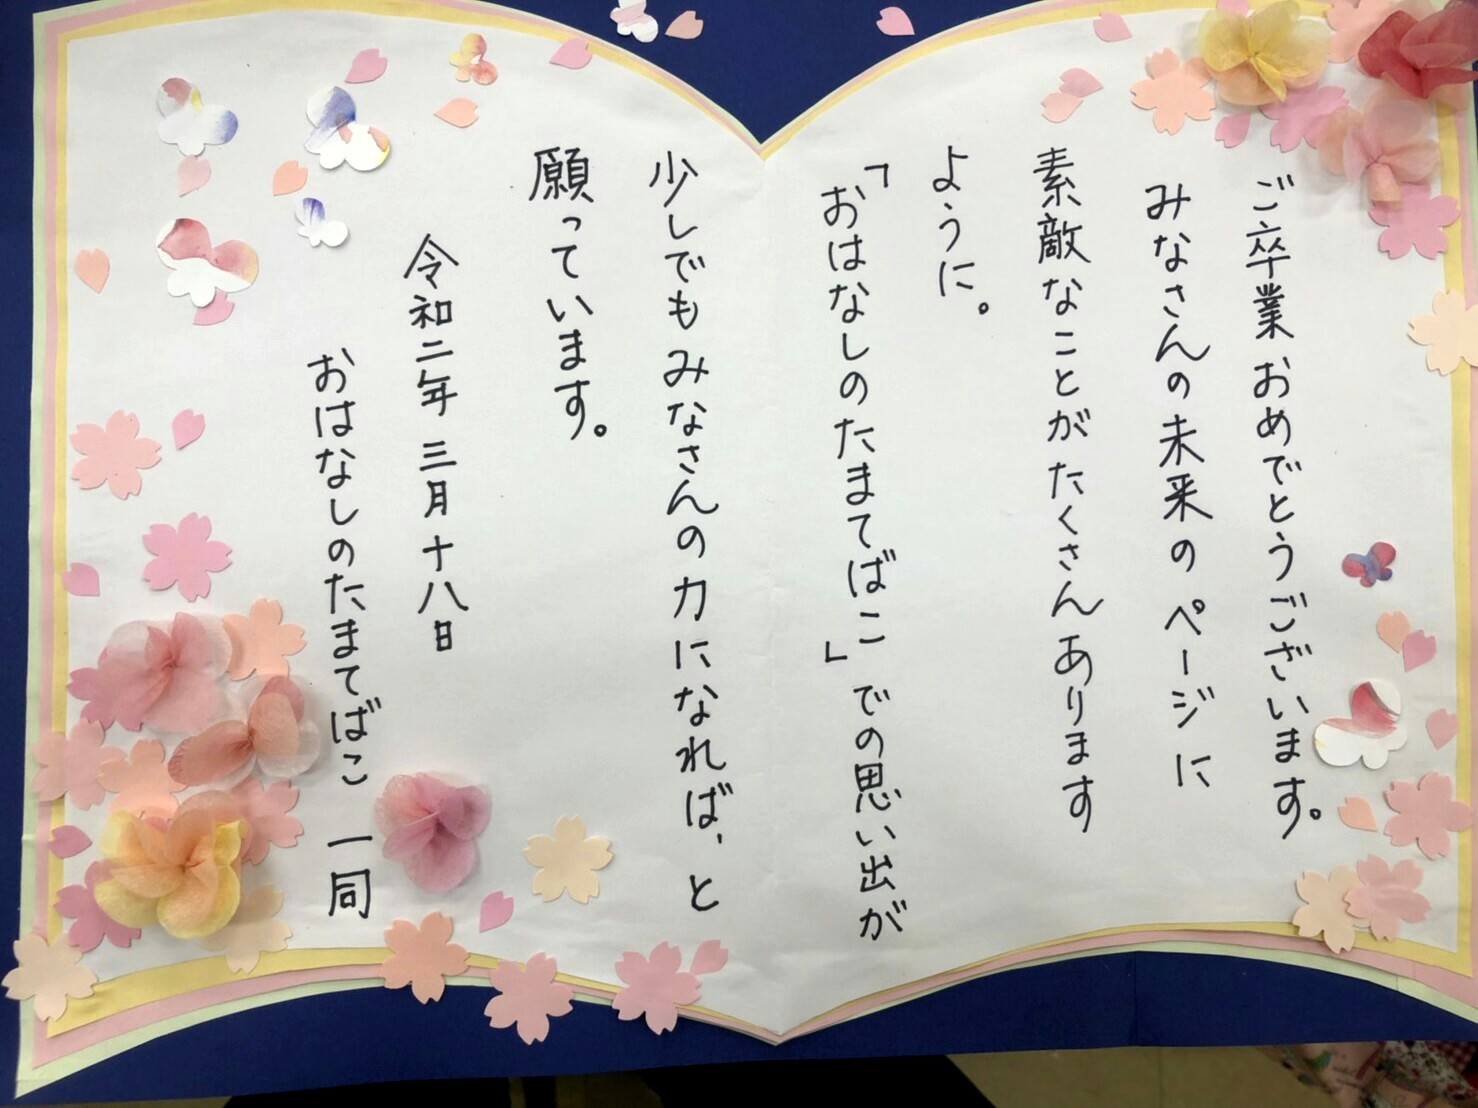 ご卒業おめでとうございます。
みなさんの未来のページに
素敵なことがたくさんあります
ように。
「おはなしのたまてばこ」での思い出が
少しでもみなさんの力になれば、と
願っています。
令和二年 三月十八日
おはなしのたまてばこ 一同